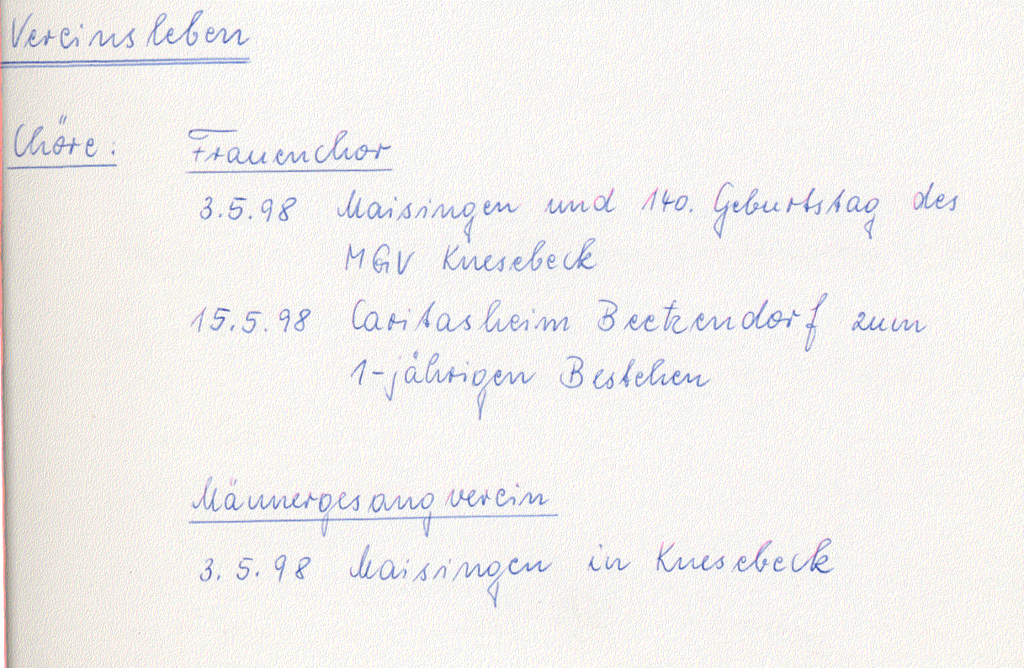 Vereinsleben
Chöre: Frauenchor
3.5.98 Maisingen und 140. Geburtstag des
MGV Knesebeck
15.5.98 Caritasheim Beetzendorf zum
1-jährigen Bestehen
Männergesangverein
3.5.98 Maisingen in Knesebeck